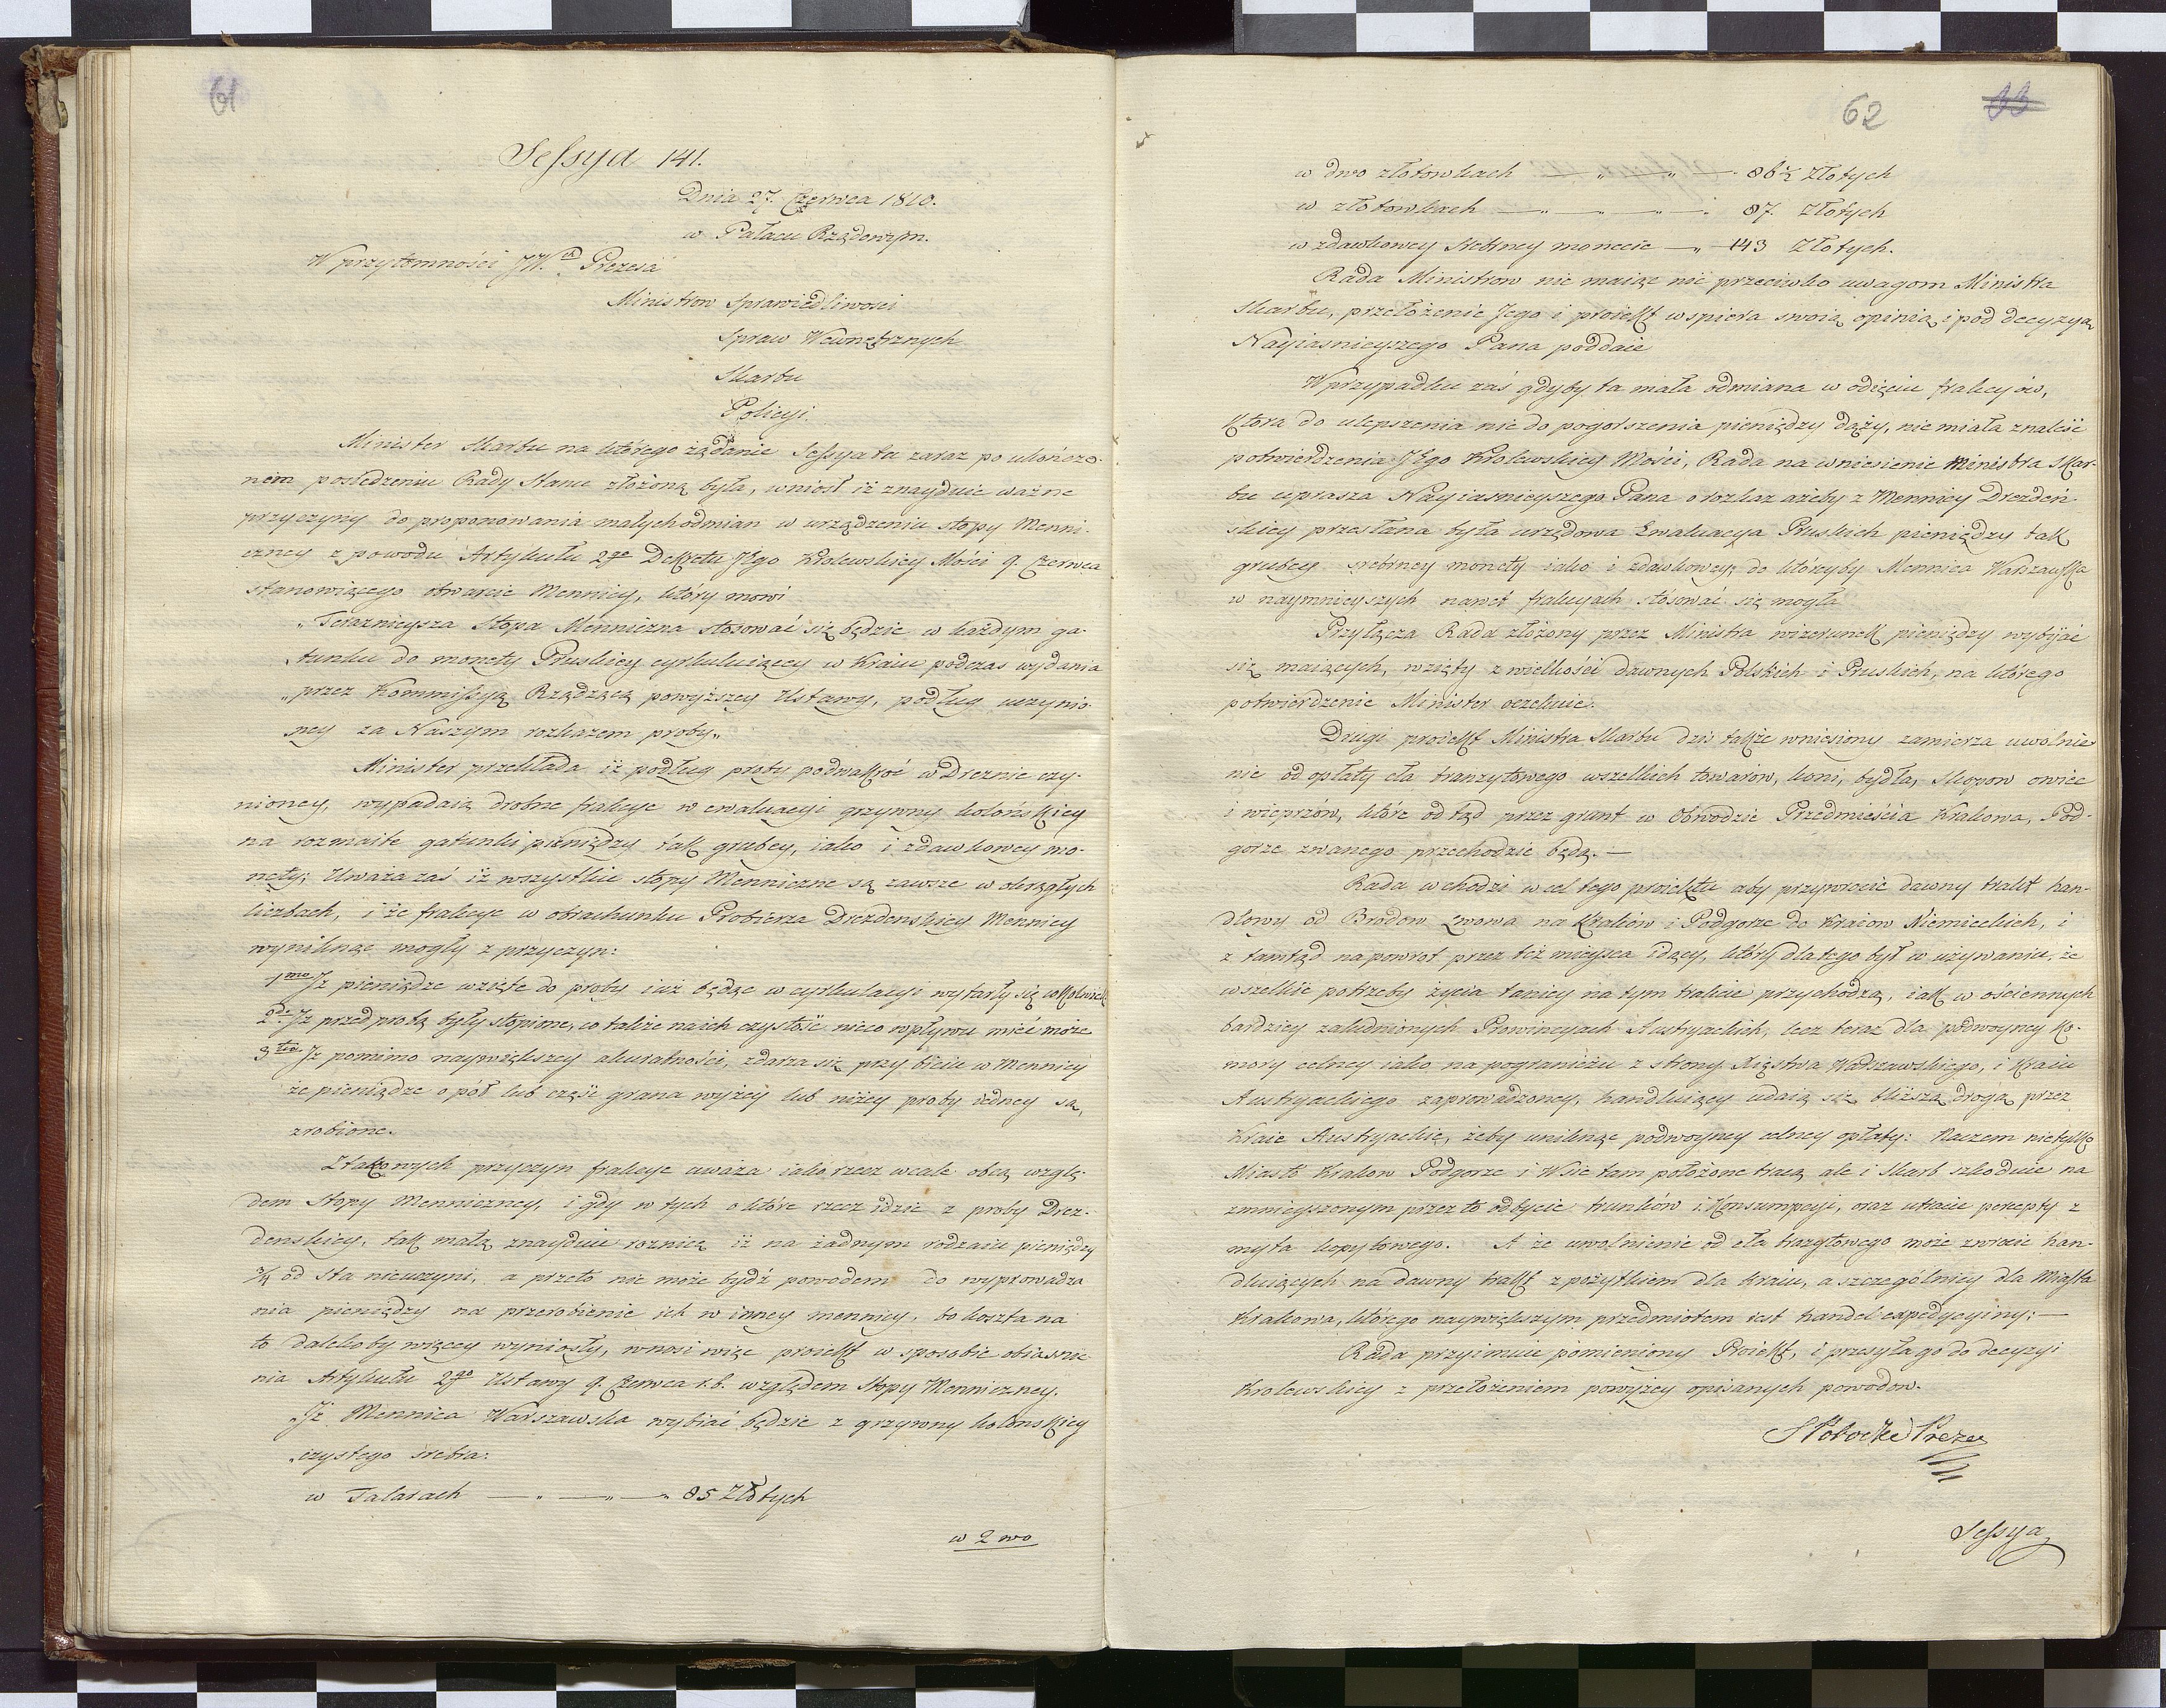 61
Sessya 141.
Dnia 27. Czerwca 1810.
w Pałacu Rządowym.
W przytomności JW.go Prezesa
Ministrow Sprawiedliwosci
Spraw Wewnętrznych
Skarbu
Policyi.
Minister Skarbu na którego żądanie Sessya ta zaraz po ukończo-
nem posiedzeniu Rady Stanu złożoną była, wniosł iż znayduie ważne
przyczyny do proponowania małych odmian w urządzeniu stopy Menni-
czney z powodu Artykułu 2go Dekretu JKgo Krolewskiey Mości 9. Czerwca
stanowiącego otwarcie Mennicy, który mowi
„Teraznieysza Stopa Mennicza stosować się będzie w każdym ga-
tunku do monety Pruskiey cyrkuluiącey w Kraiu podczas wydania
„przez Kommissyą Rządzącą powyższey Ustawy, podług uczynio-
ney za Naszym rozkazem proby„
Minister przekłada iż podług proby podwakroć w Dreznie czy-
nioney, wypadaią drobne frakcye w ewaluacyi grzywny kolońskiey
na rozmaite gatunki pieniędzy tak grubey, iako i zdawkowey mo-
nety; Uważa zaś iż wszystkie stopy Mennicze są zawsze w okrągłych
liczbach, i że frakcye w obrachunku Probierza Drezdenskiey Mennicy
wyniknąc mogły z przyczyn:
1mo Jż pieniądze wzięte do proby iuż będąc w cyrkulacyi wytarły się cokolwiek
2do Jż przed probą były stopione, co także na ich czystość nieco wpływu mieć może
3tio Jż pomimo naywiększey akuratności, zdarza się przy biciu w Mennicy
że pieniądze o pół lub część grana wyżey lub niżey proby iedney są,
zrobione.
Z takowych przyczyn frakcye uważa iako rzecz wcale obcą wzglę-
dem Stopy Menniczney, i gdy w tych o które rzecz idzie z proby Drez-
denskiey, tak małą znayduie roznicę iż na żadnym rodzaiu pieniędzy
3/4 od sta nieuczyni, a przeto nie może bydź powodem do wyprowadza
nia pieniędzy na przerobienie ich w inney mennicy, bo koszta na
to daleko by więcey wyniosły, wnosi więc proiekt w sposobie obiasnie-
nia Artykułu 2go Ustawy 9. Czerwca r.b. względem Stopy Menniczney.
„Jż Mennica Warszawska wybiiać będzie z grzywny kolonskiey
„czystego srebra:
w Talarach — „ — „ — „ 85 Złotych
w 2 wo
62
w dwo złotowkach — „ — „ — 86½ Złotych
w złotowkach — „ — „ — „ — 87. Złotych
w zdawkowey srebrney monecie — „ — 143 Złotych.
Rada Ministrow nie maiąc nic przeciwko uwagom Ministra
Skarbu, przełożenie Jego i proiekt wspiera swoią opinią i pod decyzyą
Nayiasnieyszego Pana poddaie
W przypadku zaś gdyby ta mała odmiana w odięciu frakcyów,
która do ulepszenia nie do pogorszenia pieniędzy dąży, nie miała znaleść
potwierdzenia JKgo Krolewskiey Mości, Rada na wniesienie Ministra Skar-
bu uprasza Nayiasnieyszego Pana o rozkaz ażeby z Mennicy Drezdeń-
skiey przesłana była urzędowa Ewaluacya Pruskich pieniędzy tak
grubey srebrney monety iako i zdawkowey; do któreyby Mennica Warszawska
w naymnieyszych nawet frakcyach stósować się mogła
Przyłącza Rada złożony przez Ministra wizerunek pieniędzy wybiiać
się maiących, wzięty z wielkości dawnych Polskich i Pruskich, na którego
potwierdzenie Minister oczekuie.
Drugi proiekt Ministra Skarbu dziś także wniesiony zamierza uwolnie
nie od opłaty cła tranzytowego wszelkich towarów, koni, bydła, Skopow owiec
i wieprzów, które odtąd przez grunt w Obwodzie Przedmieścia Krakowa, Pod-
gorze zwanego przechodzić będą. —
Rada wchodzi w cel tego proiektu aby przywrocić dawny trakt han-
dlowy od Brodow Lwowa na Krakow i Podgorze do Kraiow Niemieckich, i
z tamtąd na powrot przez też mieysca idący, który dlatego był w używaniu, że
wszelkie potrzeby życia taniey na tym trakcie przychodzą, iak w ościennych
bardziey zaludnionych Prowincyach Austryackich, lecz teraz dla podwoyney Ko-
mory celney iako na pograniczu z strony Xięstwa Warszawskiego, i Kraiu
Austryackiego zaprowadzoney, handluiący udaią się bliższą drogą przez
Kraie Austryackie, żeby uniknąc podwoyney celney opłaty: Naczem nietylko
Miasto Krakow Podgorze i Wsie tam położone tracą ale i Skarb szkoduie na
zmnieyszonym przez to odbycie trunków i Konsumpcyi, oraz utracie percepty z
myta kopytowego. A że uwolnienie od cła tranzytowego może zwrocić han-
dluiących na dawny trakt z pożytkiem dla kraiu, a szczególniey dla Miasta
Krakowa, którego naywiększym przedmiotem iest handel expedycyiny: —
Rada przyimuie pomieniony Proiekt, i przesyła go do decyzyi
Krolewskiey z przełożeniem powyżey opisanych powodow.
SPotocki Prezes
Sessya